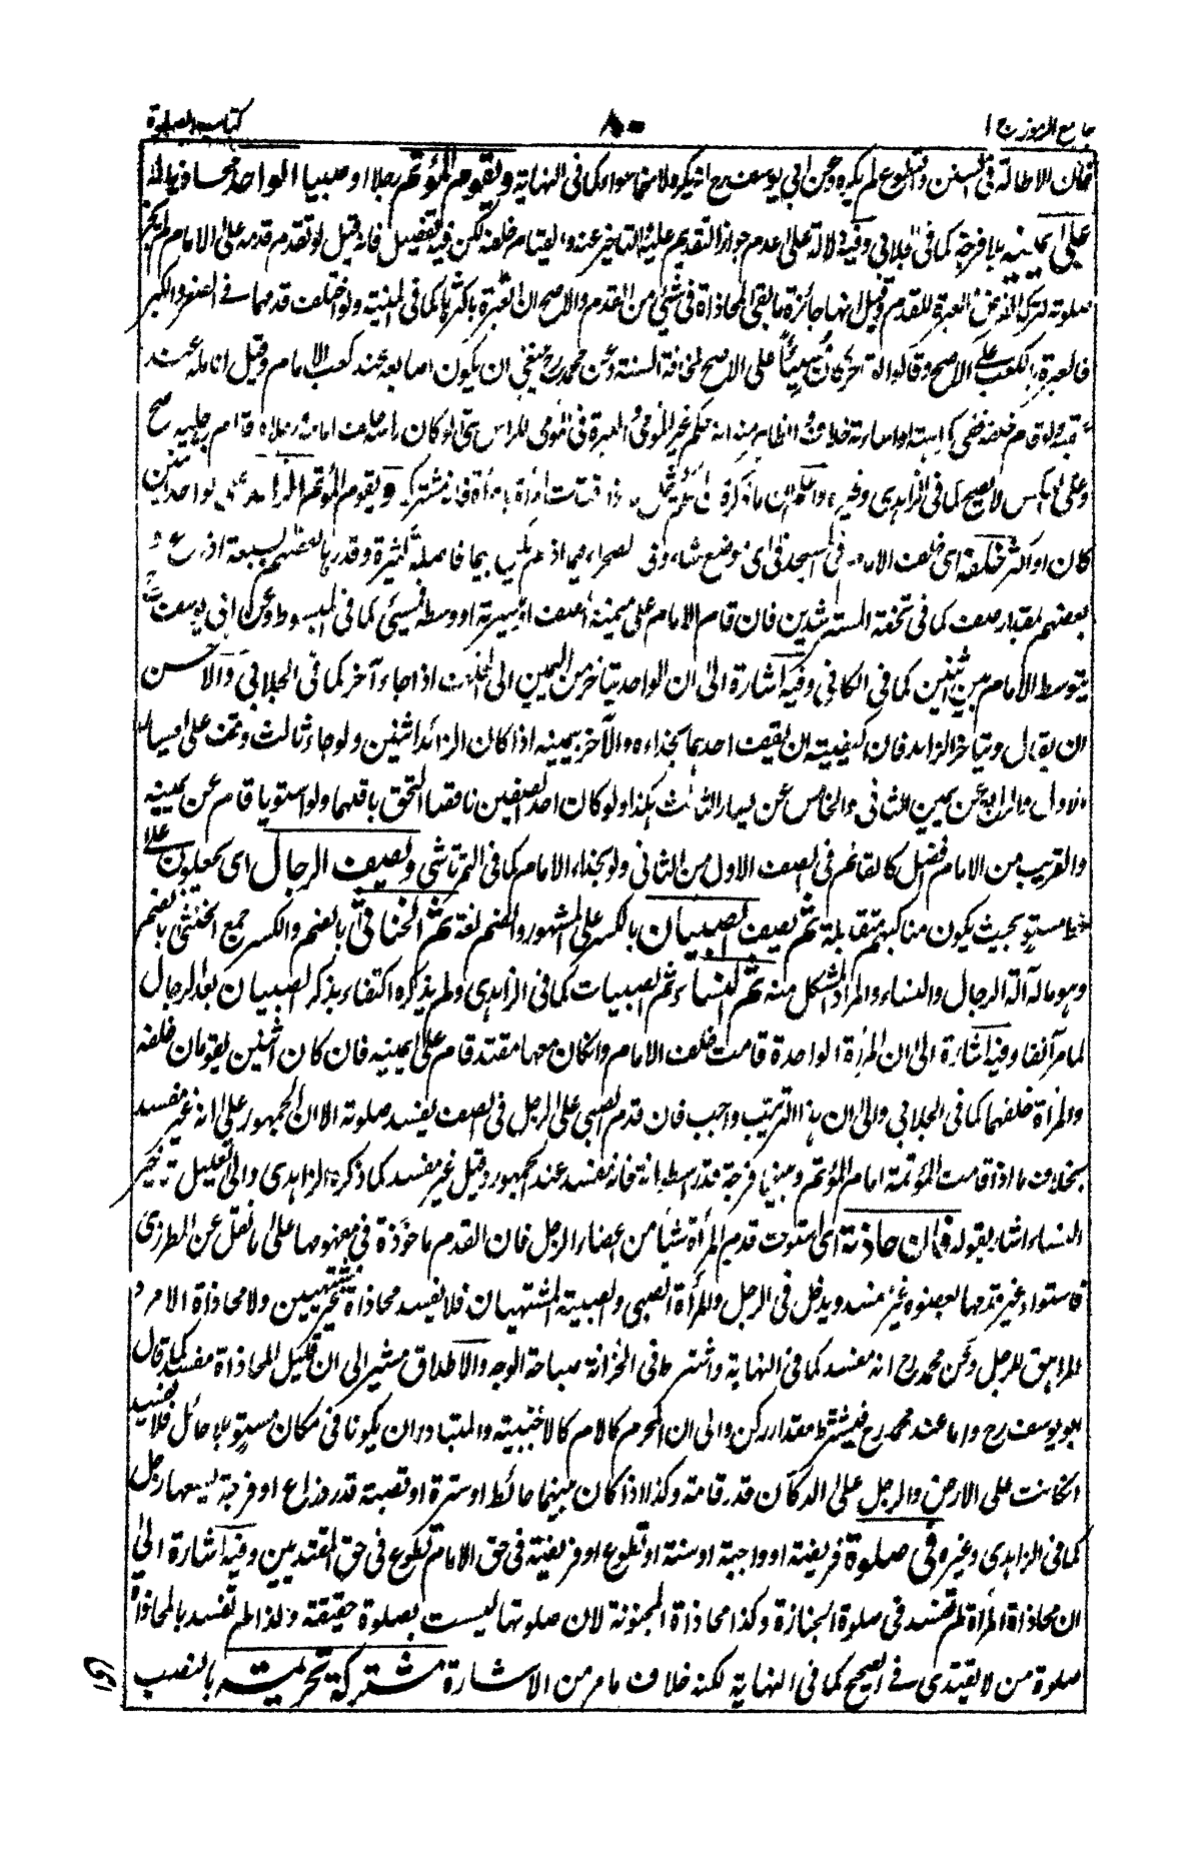 جامع الرموز ج ا
٨٠
كتاب الصلوة
الاطالة فى السنن والتطوع لم يكره وعن ابى يوسف رح انه يكره والامام سواء كما فى النهاية ويقوم المؤتم رجلا او صبيا الواحد محاذيا له
على يمينه بلا فرجة كما فى الجلابى وفيه دلالة على عدم جواز التقديم عليه والتاخير عنه والقيام خلفه لكن فيه تفصيل فانه قيل لو تقدم قدمه على الامام لم يجز
صلوته لترك الفرض العبرة للقدم وقيل انها جائزة ما بقى المحاذاة فى شئ من القدم والاصح ان العبرة باكثرها كما فى المنية ولو اختلفت قدمهما فى الصغر والكبر
فالعبرة بالكعب على الاصح وقالوا التحرى كان مسيئا على الاصح لمخالفة السنة وعن محمد رح ينبغى ان يكون اصابعه عند كعب الامام وقيل انامله عند
عقبه ولو قام خلفه ففى كراهته او اساءته خلاف والظاهر منه انه حكم غير المومى والعبرة فى المومى للراس حتى لو كان راسه خلف امامه ورجلاه قدام رجليه صح
وعلى العكس لا يصح كما فى الزاهدى وغيره واعلم ان ما ذكره فانه مشترك ويقوم المؤتم الزائد على الواحد اثنين
كان او اكثر خلفه اى خلف الامام فى المسجد فى اى موضع شاء وفى الصحراء فيما اذا لم يكن بينهما فاصلة كثيرة وقدرها بعضهم بسبعة اذرع و
بعضهم بمقدار صف كما فى تحفة المسترشدين فان قام الامام على ميمنة الصف او ميسرته او وسطه فمسيئ كما فى المبسوط وعن ابى يوسف رح
يتوسط الامام بين اثنين كما فى الكافى وفيه اشارة الى ان الواحد يتاخر من اليمين الى الخلف اذا جاء آخر كما فى الجلابى والاحسن
ان يقال ويتاخر الزائد فان كيفيته ان يقف احدهما بحذائه والآخر بيمينه اذا كان الزائد اثنين ولو جاء ثالث وقف على يسار
الاول والرابع عن يمين الثانى والخامس عن يسار الثالث هكذا ولو كان احد الصفين ناقصا التحق باقلهما ولو استويا قام عن يمينه
والقريب من الامام افضل كالقائم فى الصف الاول من الثانى ولو بحذاء الامام كما فى التمرتاشى ويصف الرجال اى يجعلون على
خط مستو بحيث يكون مناكبهم متقابلة ثم يصف الصبيان بالكسر على المشهور والضم لغة ثم الخناثى بالضم والكسر جمع الخنثى بالضم
وهو ما له آلة الرجال والنساء والمراد المشكل منه ثم النساء ثم الصبيات كما فى الزاهدى ولم يذكره اكتفاء بذكر الصبيان بعد الرجال
لما مر آنفا وفيه اشارة الى ان المرأة الواحدة قامت خلف الامام وان كان معها مقتد قام على يمينه فان كان اثنين يقومان خلفه
والمرأة خلفهما كما فى الجلابى والى ان هذا الترتيب واجب فان قدم الصبى على الرجل فى الصف يفسد صلوته الا ان الجمهور على انه غير مفسد
بخلاف ما اذا قامت المؤتمة امام المؤتم وبينهما فرجة قدر اسطوانة فانه مفسد عند الجمهور وقيل غير مفسد كما ذكره الزاهدى والى تعليل تاخير
النساء اشار بقوله فان حاذته اى استوت قدم المرأة شيأ من اعضاء الرجل فان القدم ماخوذة فى مفهومها على ما نقل عن المطرزى
فاستواء غير قدمها لعضوه غير مفسد ويدخل فى الرجل والمرأة الصبى والصبية المشتهيان فلا يفسد محاذاة غير مشتهيين ولا محاذاة الامرد
المراهق للرجل وعن محمد رح انه مفسد كما فى النهاية واشترط فى الخزانة صباحة الوجه والاطلاق مشير الى ان قليل المحاذاة مفسد كما قال
ابو يوسف رح واما عند محمد رح فيشترط مقدار ركن والى ان المحرم كالام كالاجنبية والمتبادر ان يكونا فى مكان مستو بلا حائل فلا يفسد
ان كانت على الارض والرجل على الدكان قدر قامة وكذا اذا كان بينهما حائط او سترة او قصبة قدر ذراع او فرجة يسعها رجل
كما فى الزاهدى وغيره فى صلوة فريضة او واجبة او سنة او تطوع او فريضة فى حق الامام تطوع فى حق المقتديين وفيه اشارة الى
ان محاذاة المرأة لم تفسد فى صلوة الجنازة وكذا محاذاة المجنونة لان صلوتها ليست بصلوة حقيقة ولذا لم تفسد بالمحاذاة
صلوة من لا يقتدى فى الصحيح كما فى النهاية لكنه خلاف ما مر من الاشارة مشتركة تحريمته بالنصب